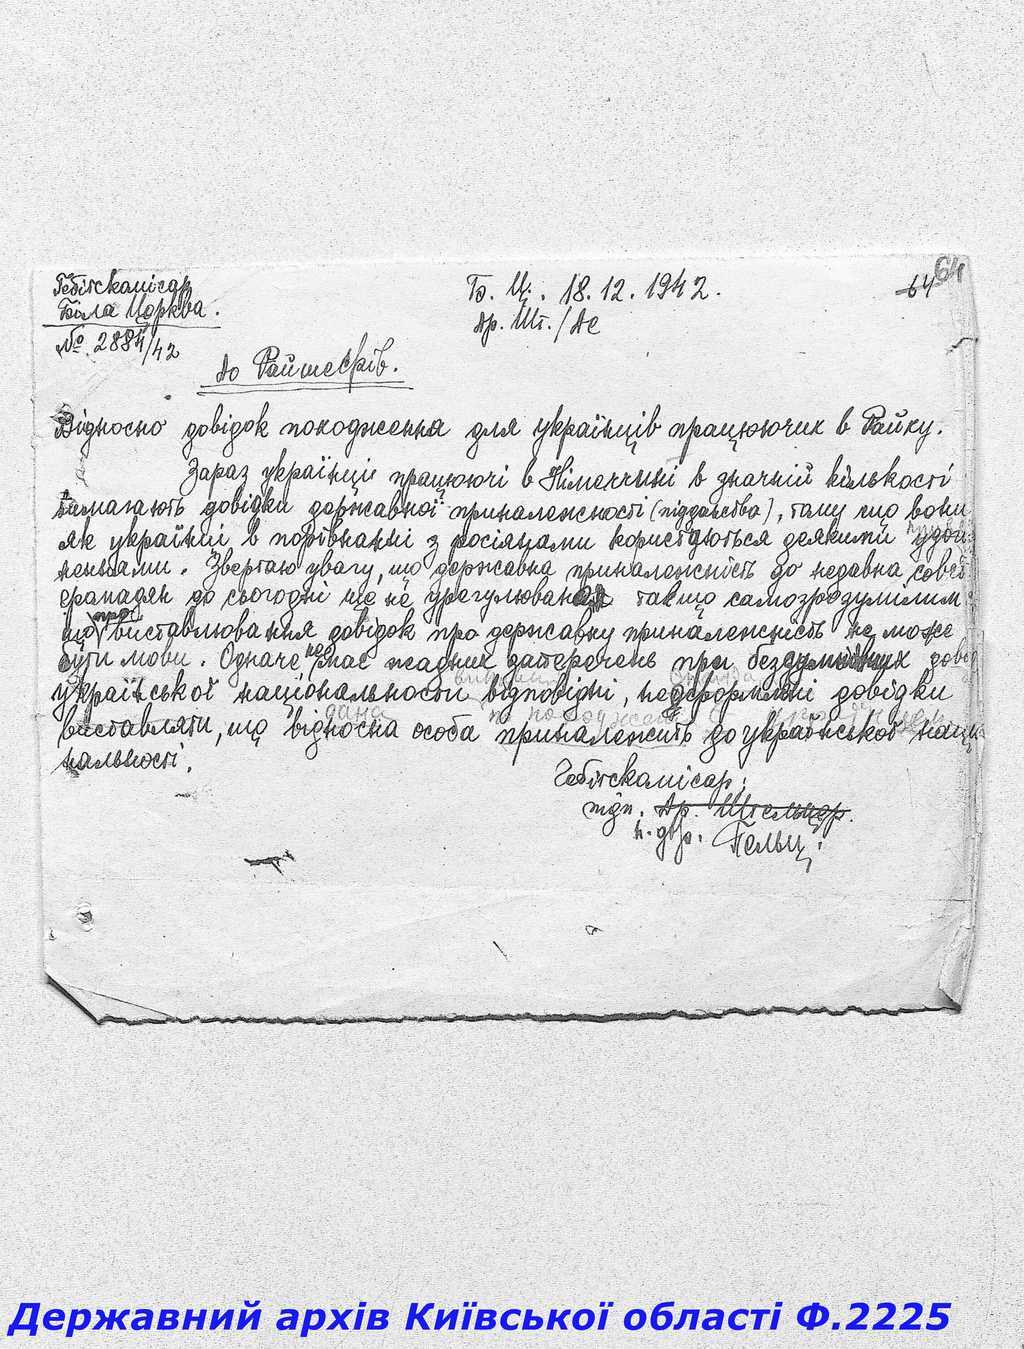 Гебітскомісар
Біла Церква.
№ 2884/42
Б. Ц. 18.12.1942.
Др. Шт./Де
64
64
До Райшефів.
Відносно довідок походження для українців працюючих в Райху.
Зараз українці працюючі в Німеччині в значній кількості
вимагають довідки державної приналежності (підданства), тому що вони
як українці в порівнанні з росіянами користуються деякими
. Звертаю увагу, що державна приналежність до недавна совєт
громадян до сьогодні ще не урегульована так що самозрозумілим
що про виставлювання довідок про державну приналежність не може
бути мови. Одначе не має жадних заперечень при довід
української національности відповідні, неформальні довідки
дана по походженню
виставляти, що відносна особа приналежить до української наці
нальності.
Гебітскомісар:
підп. Др. Штельцер.
п. дор. Пельц.
Державний архів Київської області Ф.2225